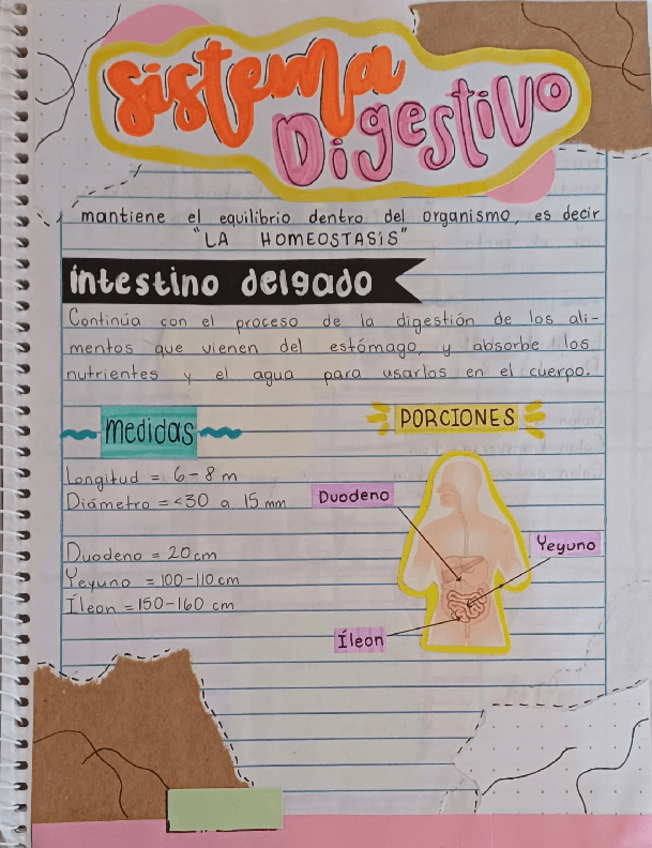 Sistema
Digestivo
mantiene el equilibrio dentro del organismo, es decir
"LA HOMEOSTASIS"
intestino delgado
Continúa con el proceso de la digestión de los ali-
mentos que vienen del estómago, y absorbe los
nutrientes y el agua para usarlos en el cuerpo.
Medidas
Longitud = 6-8 m
Diámetro = <30 a 15 mm
Duodeno = 20 cm
Yeyuno = 100-110 cm
Íleon = 150-160 cm
PORCIONES
Duodeno
Yeyuno
Íleon